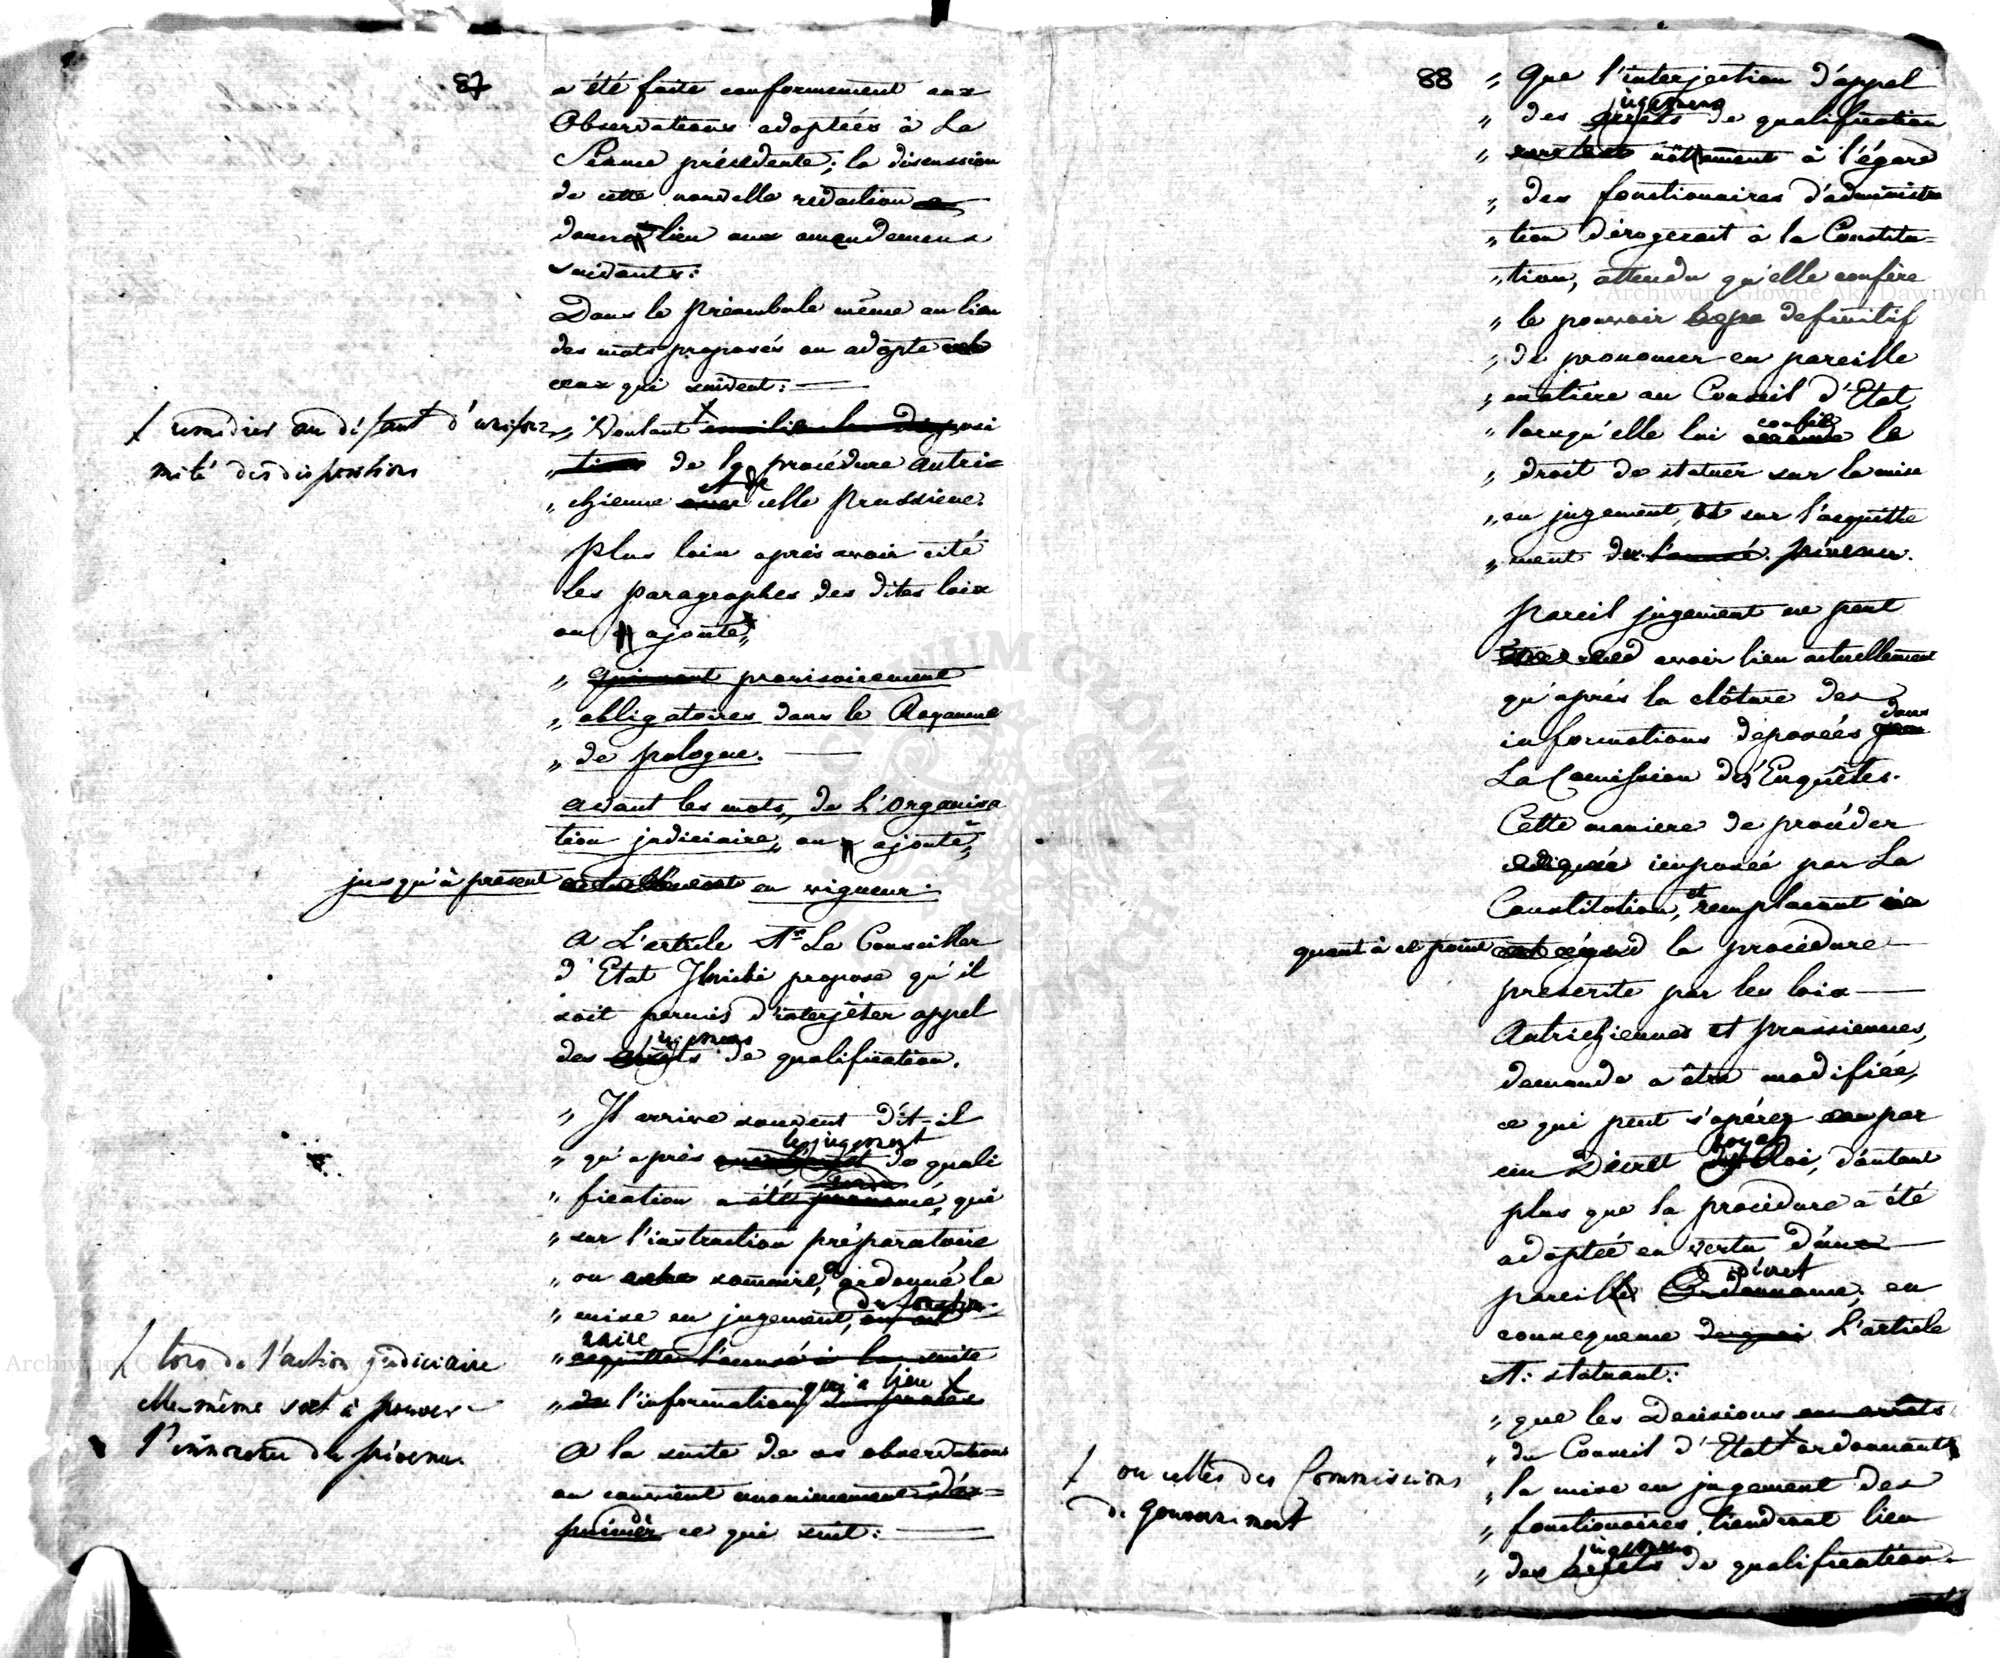 87
a été faite conformement aux
Observations adoptées à la
Séance précedente; la discussion
de cette nouvelle redaction
donna lieu aux amendemens
suivants:
Dans le préambule même au lieu
des mots proposés on adopte
ceux qui suivent: —
" Voulant concilier les disposi
" tions de la procédure autri=
" chienne et de celle prussiene.
remedier au défaut d'unifor=
mité des dispositions
Plus loin après avoir cité
les paragraphes des dites loix
on ajoute "
" provisoirement
" obligatoires dans le Royaume
" de pologne. —
avant les mots " de l'organisa
tion judiciaire " on ajoute "
jusqu'à présent actuellement en vigueur.
A l'article 1r Le Conseiller
d'Etat propose qu'il
soit permis d'interjèter appel
des jugemens de qualification.
" Il arrive souvent dit-il
" qu'après le jugement de quali
" fication a été prononcé, qui
" sur l'instruction préparatoire
" ou sommaire, ordonné la
" mise en jugement, du fonction-
naire
" acquitte l'accusé à la suite
" de l'information qui a lieu
lors de l'action judiciaire
elle-même sert à prouver
l'innocence du prévenu.
A la suite de ces observations
on convient unanimement d'ex=
primer ce qui suit: —
88
" Que l'interjection d'appel
" des jugemens de qualification
" nottament à l'égard
" des fonctionaires d'administra
" tion dérogerait à la Constitu=
" tion, attendu qu'elle confère
" le pouvoir definitif
" de prononcer en pareille
" matière au Conseil d'Etat,
" lorsqu'elle lui confie le
" droit de statuer sur la mise
" en jugement, et sur l'acquitte
" ment du l'accusé. prévenu.
Pareil jugement ne peut
avoir lieu actuellement
qu'après la clôture des
informations déposées dans
La Comission des Enquêtes.
Cette maniere de procéder
imposée par la
Constitution, et remplacant
quant à ce point cet égard la procédure
prescrite par les loix —
Autrichiennes et prussiennes,
demande a être modifiée,
ce qui peut s'opérer par
un Décret royal du Roi, d'autant
plus que la procédure a été
adoptée en vertu d'une
pareille décret Ordonnance, en
consequence l'article
1: statuant:
" que les Decisions
" du Conseil d'Etat ordonnants
ou celles des Commissions
de gouvernement
" la mise en jugement des
" fonctionaires, tiendront lieu
" des jugemens de qualification.
Archiwum Główne Akt Dawnych